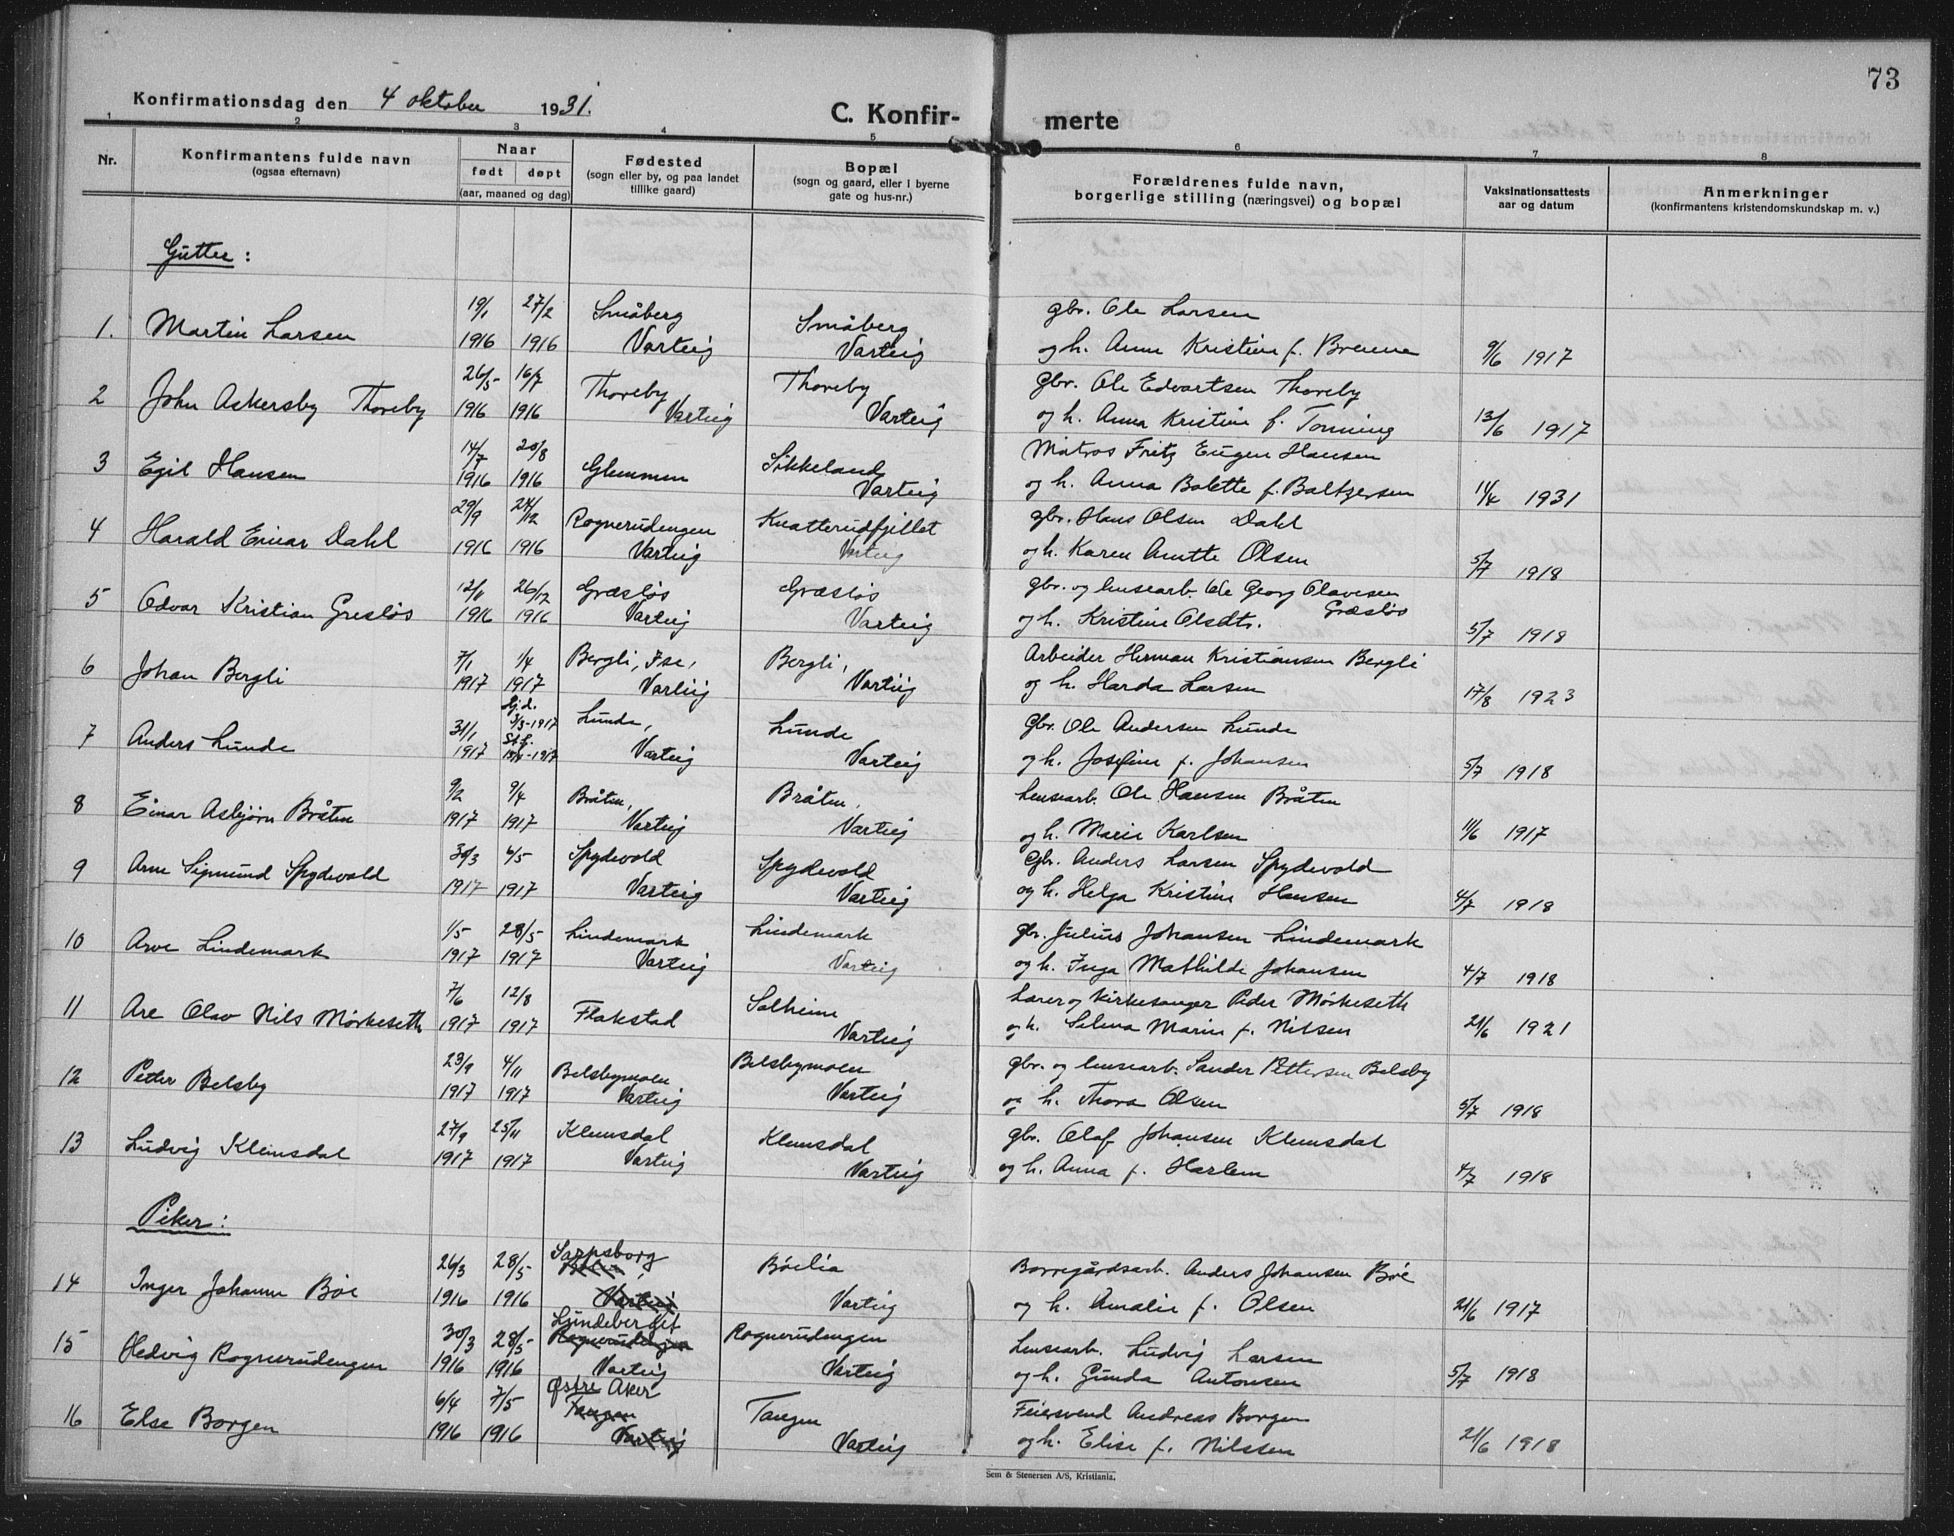 73
Konfirmationsdag den 4 oktober 1931.
C. Konfir- merte
1 2 3 4 5 6 7 8
Nr.
Konfirmantens fulde navn
(ogsaa efternavn)
Naar
født døpt
(aar, maaned og dag)
Fødested
(sogn eller by, og paa landet
tillike gaard)
Bopæl
(sogn og gaard, eller i byerne
gate og hus-nr.)
Forældrenes fulde navn,
borgerlige stilling (næringsvei) og bopæl
Vaksinationsattests
aar og datum
Anmerkninger
(konfirmantens kristendomskundskap m. v.)
Gutter:
1. Martin Larsen 19/1 1916 27/2 1916 Småberg Varteig Småberg Varteig gbr. Ole Larsen
og h. Anna Kristine f. Brenne 9/6 1917
2 John Askersby Thoreby 26/5 1916 16/7 1916 Thoreby Varteig Thoreby Varteig Gbr. Ole Edvartsen Thoreby
og h. Anna Kristine f. Tonning 13/6 1917
3 Egil Hansen 14/7 1916 20/8 1916 Glemmen Sikkeland Varteig Matros Fritz Eugen Hansen
og h. Anna Bolette f. Baltzersen 11/4 1931
4 Harald Einar Dahl 29/9 1916 24/12 1916 Rognerudengen Varteig Knatterudfjellet Varteig gbr. Hans Olsen Dahl
og h. Karen Anette Olsen 5/7 1918
5 Odvar Kristian Gresløs 12/11 1916 26/12 1916 Græsløs Varteig Græsløs Varteig gbr. og lensearb. Ole Georg Olavesen Græsløs
og h. Kristine Olsdtr. 5/7 1918
6 Johan Bergli 7/1 1917 1/4 1917 Bergli, Ise, Varteig Bergli, Varteig Arbeider Herman Kristiansen Bergli
og h. Harda Larsen 17/8 1923
7 Anders Lunde 31/1 1917 Hj.d. 3/3-1917 Lunde, Varteig Lunde Varteig Gbr. Ole Andersen Lunde
og h. Josefine f. Johansen 5/7 1918
8 Einar Asbjørn Bråten 9/2 1917 9/4 1917 Bråten, Varteig Bråten, Varteig Lensearb. Ole Hansen Bråten
og h. Marie Karlsen 11/6 1917
9 Arne Sigmund Spydevold 30/3 1917 6/5 1917 Spydevold Varteig Spydevold Varteig Gbr. Anders Larsen Spydevold
og h. Helga Kristine Hansen 4/7 1918
10 Arve Lindemark 1/5 1917 28/5 1917 Lindemark Varteig Lindemark Varteig gbr. Julius Johansen Lindemark
og h. Inga Mathilde Johansen 4/7 1918
11 Are Olav Nils Mørkeseth 7/6 1917 12/8 1917 Flakstad Solheim Varteig Lærer og Kirkesanger Peder Mørkeseth
og h. Selma Marie f. Nilsen 21/6 1921
12 Petter Belsby 23/9 1917 4/11 1917 Belsbymoen Varteig Belsbymoen Varteig gbr. og lensearb. Sander Pettersen Belsby
og h. Thora Olsen 5/7 1918
13 Ludvig Klemsdal 27/9 1917 25/11 1917 Klemsdal Varteig Klemsdal Varteig gbr. Olaf Johansen Klemsdal
og h. Anna f. Harlem 4/7 1918
Piker:
14 Inger Johanne Bøe 26/3 1916 28/5 1916 Sarpsborg Varteig Bøelia Varteig Borregårdsarb. Anders Johansen Bøe
og h. Amalie f. Olsen 21/6 1917
15 Hedvig Rognerudengen 30/3 1916 28/5 1916 Lundeberget Rognerudengen Varteig Rognerudengen Varteig Lensearb. Ludvig Larsen
og h. Gunda Antonsen 5/7 1918
16 Else Borgen 6/4 1916 7/5 1916 Østre Aker Tangen Varteig Tangen Varteig Feiersvend Andreas Borgen
og h. Elise f. Nilssen 21/6 1918
Sem & Stenersen A/S, Kristiania.